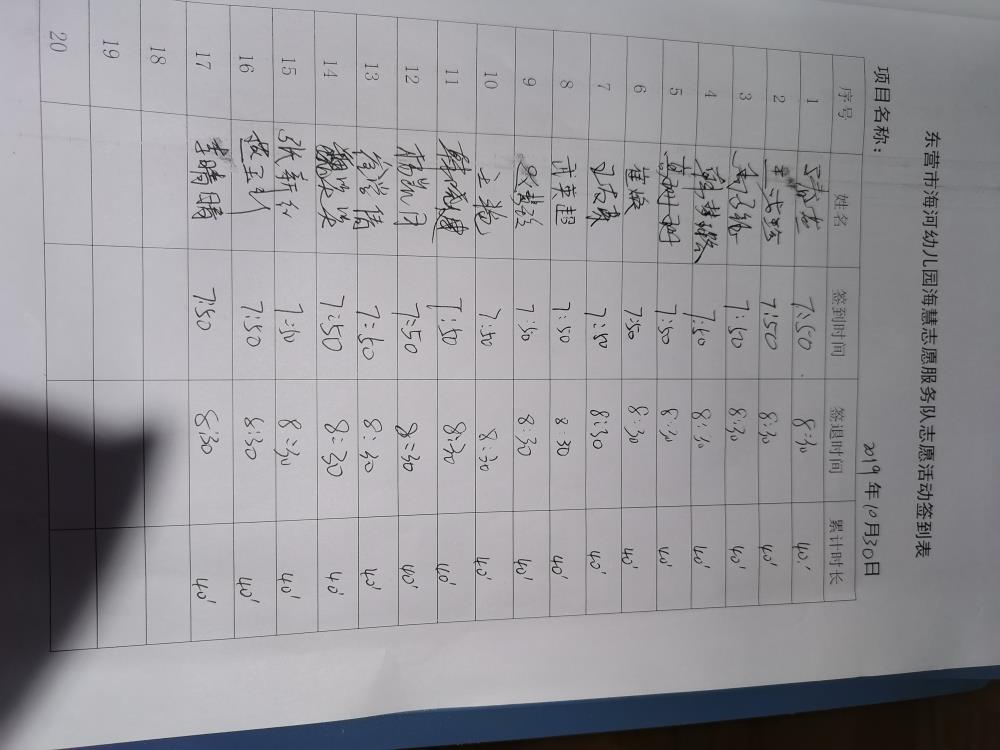 东营市海河幼儿园海慧志愿服务队志愿活动签到表
项目名称： 2019年10月30日
序号 姓名 签到时间 签退时间 累计时长
1 7:50 8:30 40'
2 7:50 8:30 40'
3 7:50 8:30 40'
4 7:50 8:30 40'
5 7:50 8:30 40'
6 崔姣 7:50 8:30 40'
7 7:50 8:30 40'
8 武英超 7:50 8:30 40'
9 7:50 8:30 40'
10 7:50 8:30 40'
11 韩晓慧 7:50 8:30 40'
12 杨凯月 7:50 8:30 40'
13 7:50 8:30 40'
14 7:50 8:30 40'
15 张新红 7:50 8:30 40'
16 7:50 8:30 40'
17 李晴晴 7:50 8:30 40'
18
19
20